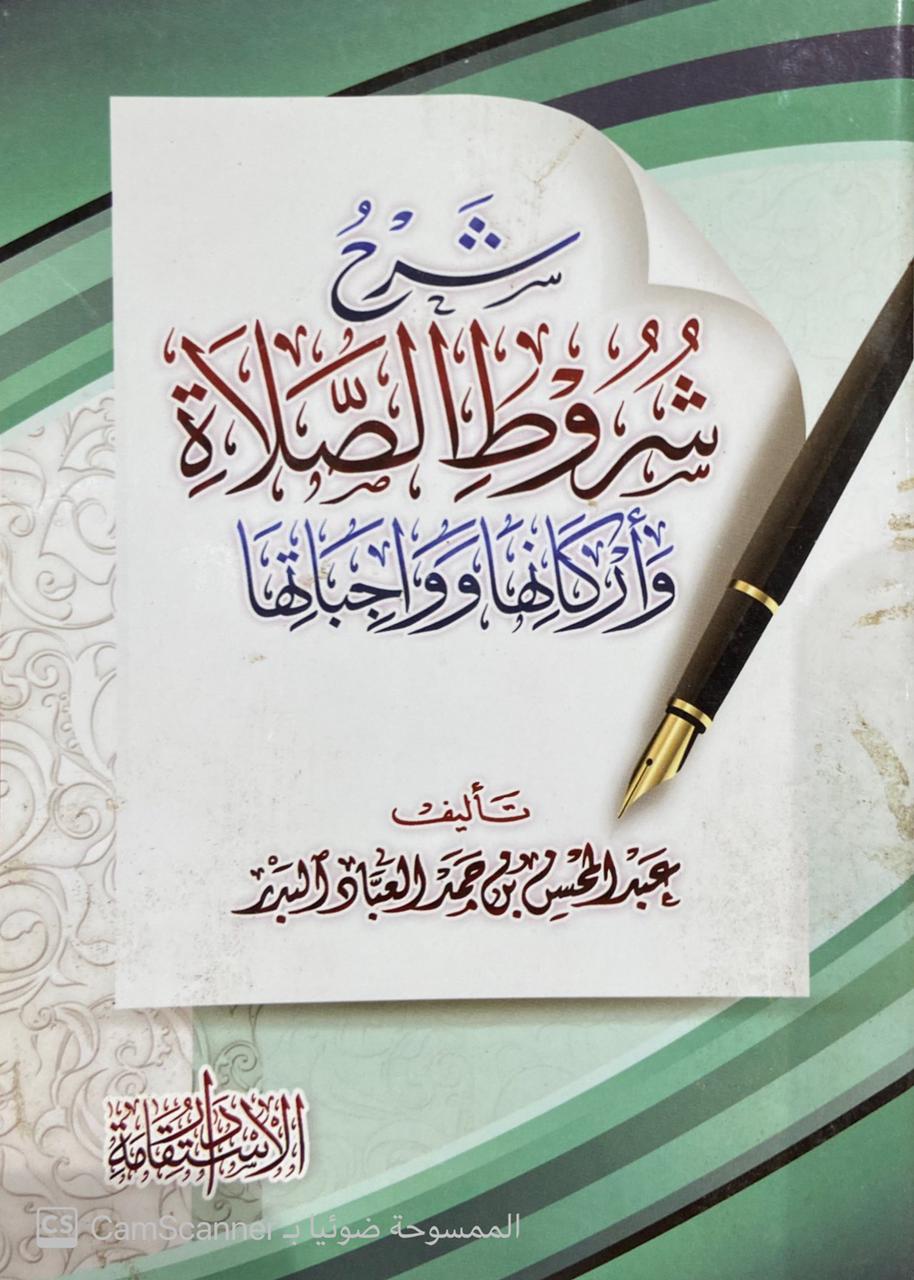 شَرْحُ
شُرُوطِ الصَّلَاةِ
وَأَرْكَانِهَا وَوَاجِبَاتِهَا
تَأليف
عَبْد المحْسِن بْن حَمَد العَبَّاد البَدْر
دار الاستقامة
CS CamScanner الممسوحة ضوئيا بـ